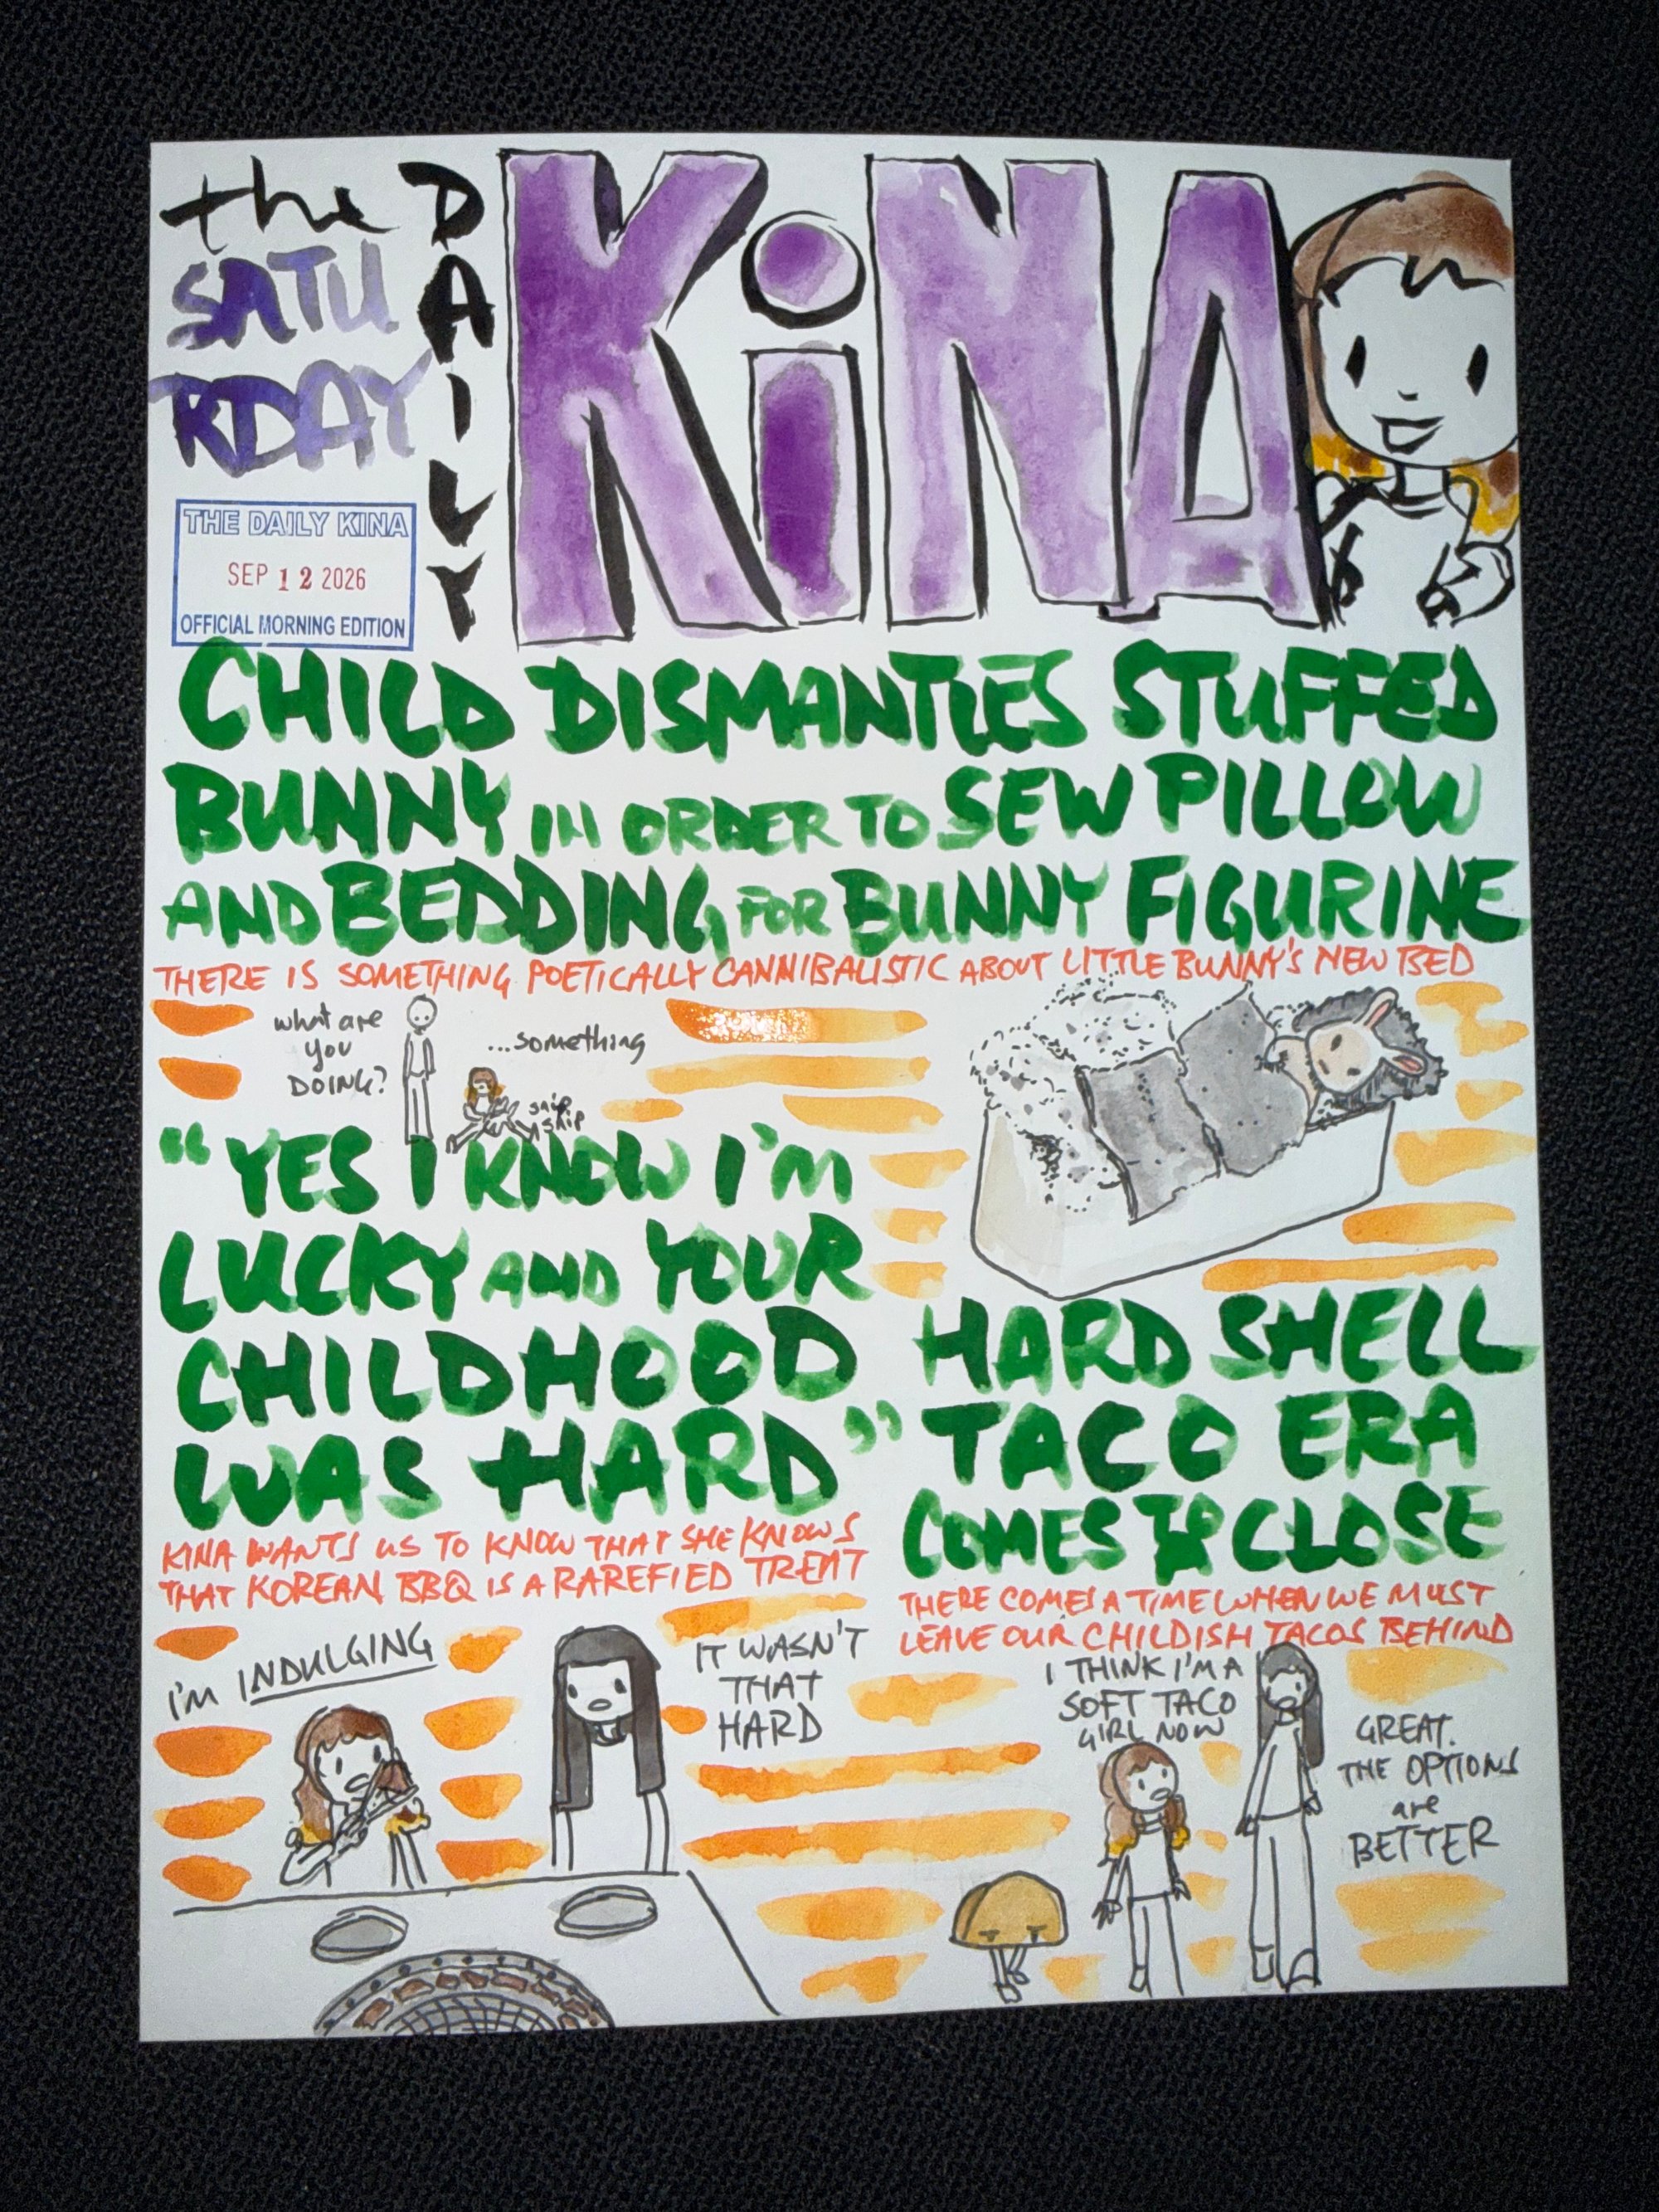 the
SATU
RDAY
DAILY
KiNA
THE DAILY KINA
SEP 12 2026
OFFICIAL MORNING EDITION
CHILD DISMANTLES STUFFED
BUNNY IN ORDER TO SEW PILLOW
AND BEDDING FOR BUNNY FIGURINE
THERE IS SOMETHING POETICALLY CANNIBALISTIC ABOUT LITTLE BUNNY'S NEW BED
what are
you
DOING?
...something
snip
snip
"YES I KNOW I'M
LUCKY AND YOUR
CHILDHOOD
WAS HARD"
KINA WANTS US TO KNOW THAT SHE KNOWS
THAT KOREAN BBQ IS A RAREFIED TREAT
I'M INDULGING
IT WASN'T
THAT
HARD
HARD SHELL
TACO ERA
COMES TO CLOSE
THERE COMES A TIME WHEN WE MUST
LEAVE OUR CHILDISH TACOS BEHIND
I THINK I'M A
SOFT TACO
GIRL NOW
GREAT.
THE OPTIONS
are
BETTER